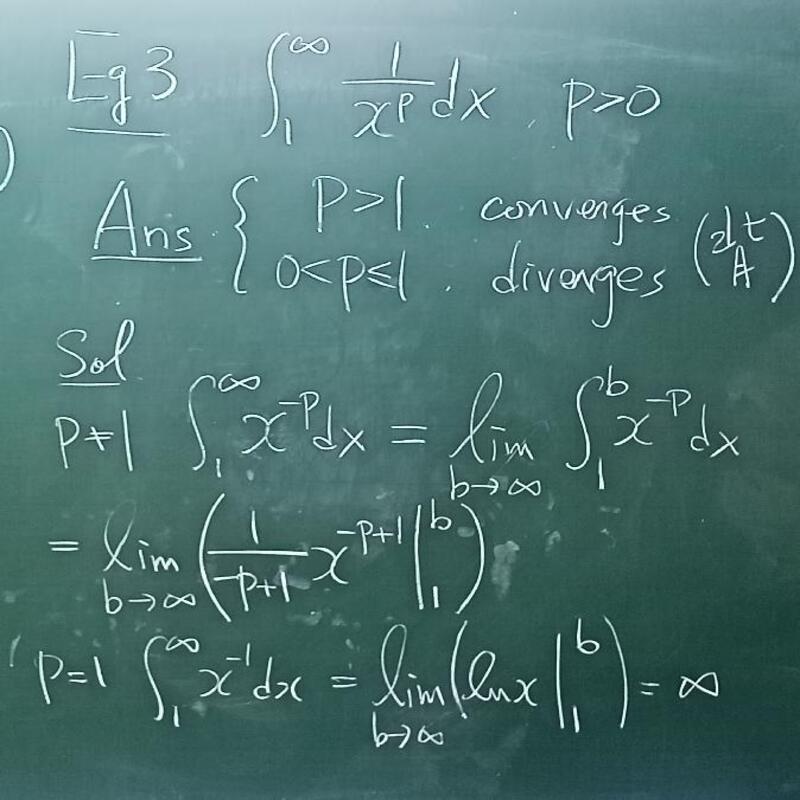 Eg 3 ∫₁^∞ 1/x^p dx, p>0
Ans { p>1, converges
0<p≤1, diverges
Sol
p≠1 ∫₁^∞ x^{-p} dx = lim_{b→∞} ∫₁^b x^{-p} dx
= lim_{b→∞} ( 1/(-p+1) x^{-p+1} |₁^b )
p=1 ∫₁^∞ x^{-1} dx = lim_{b→∞} ( ln x |₁^b ) = ∞